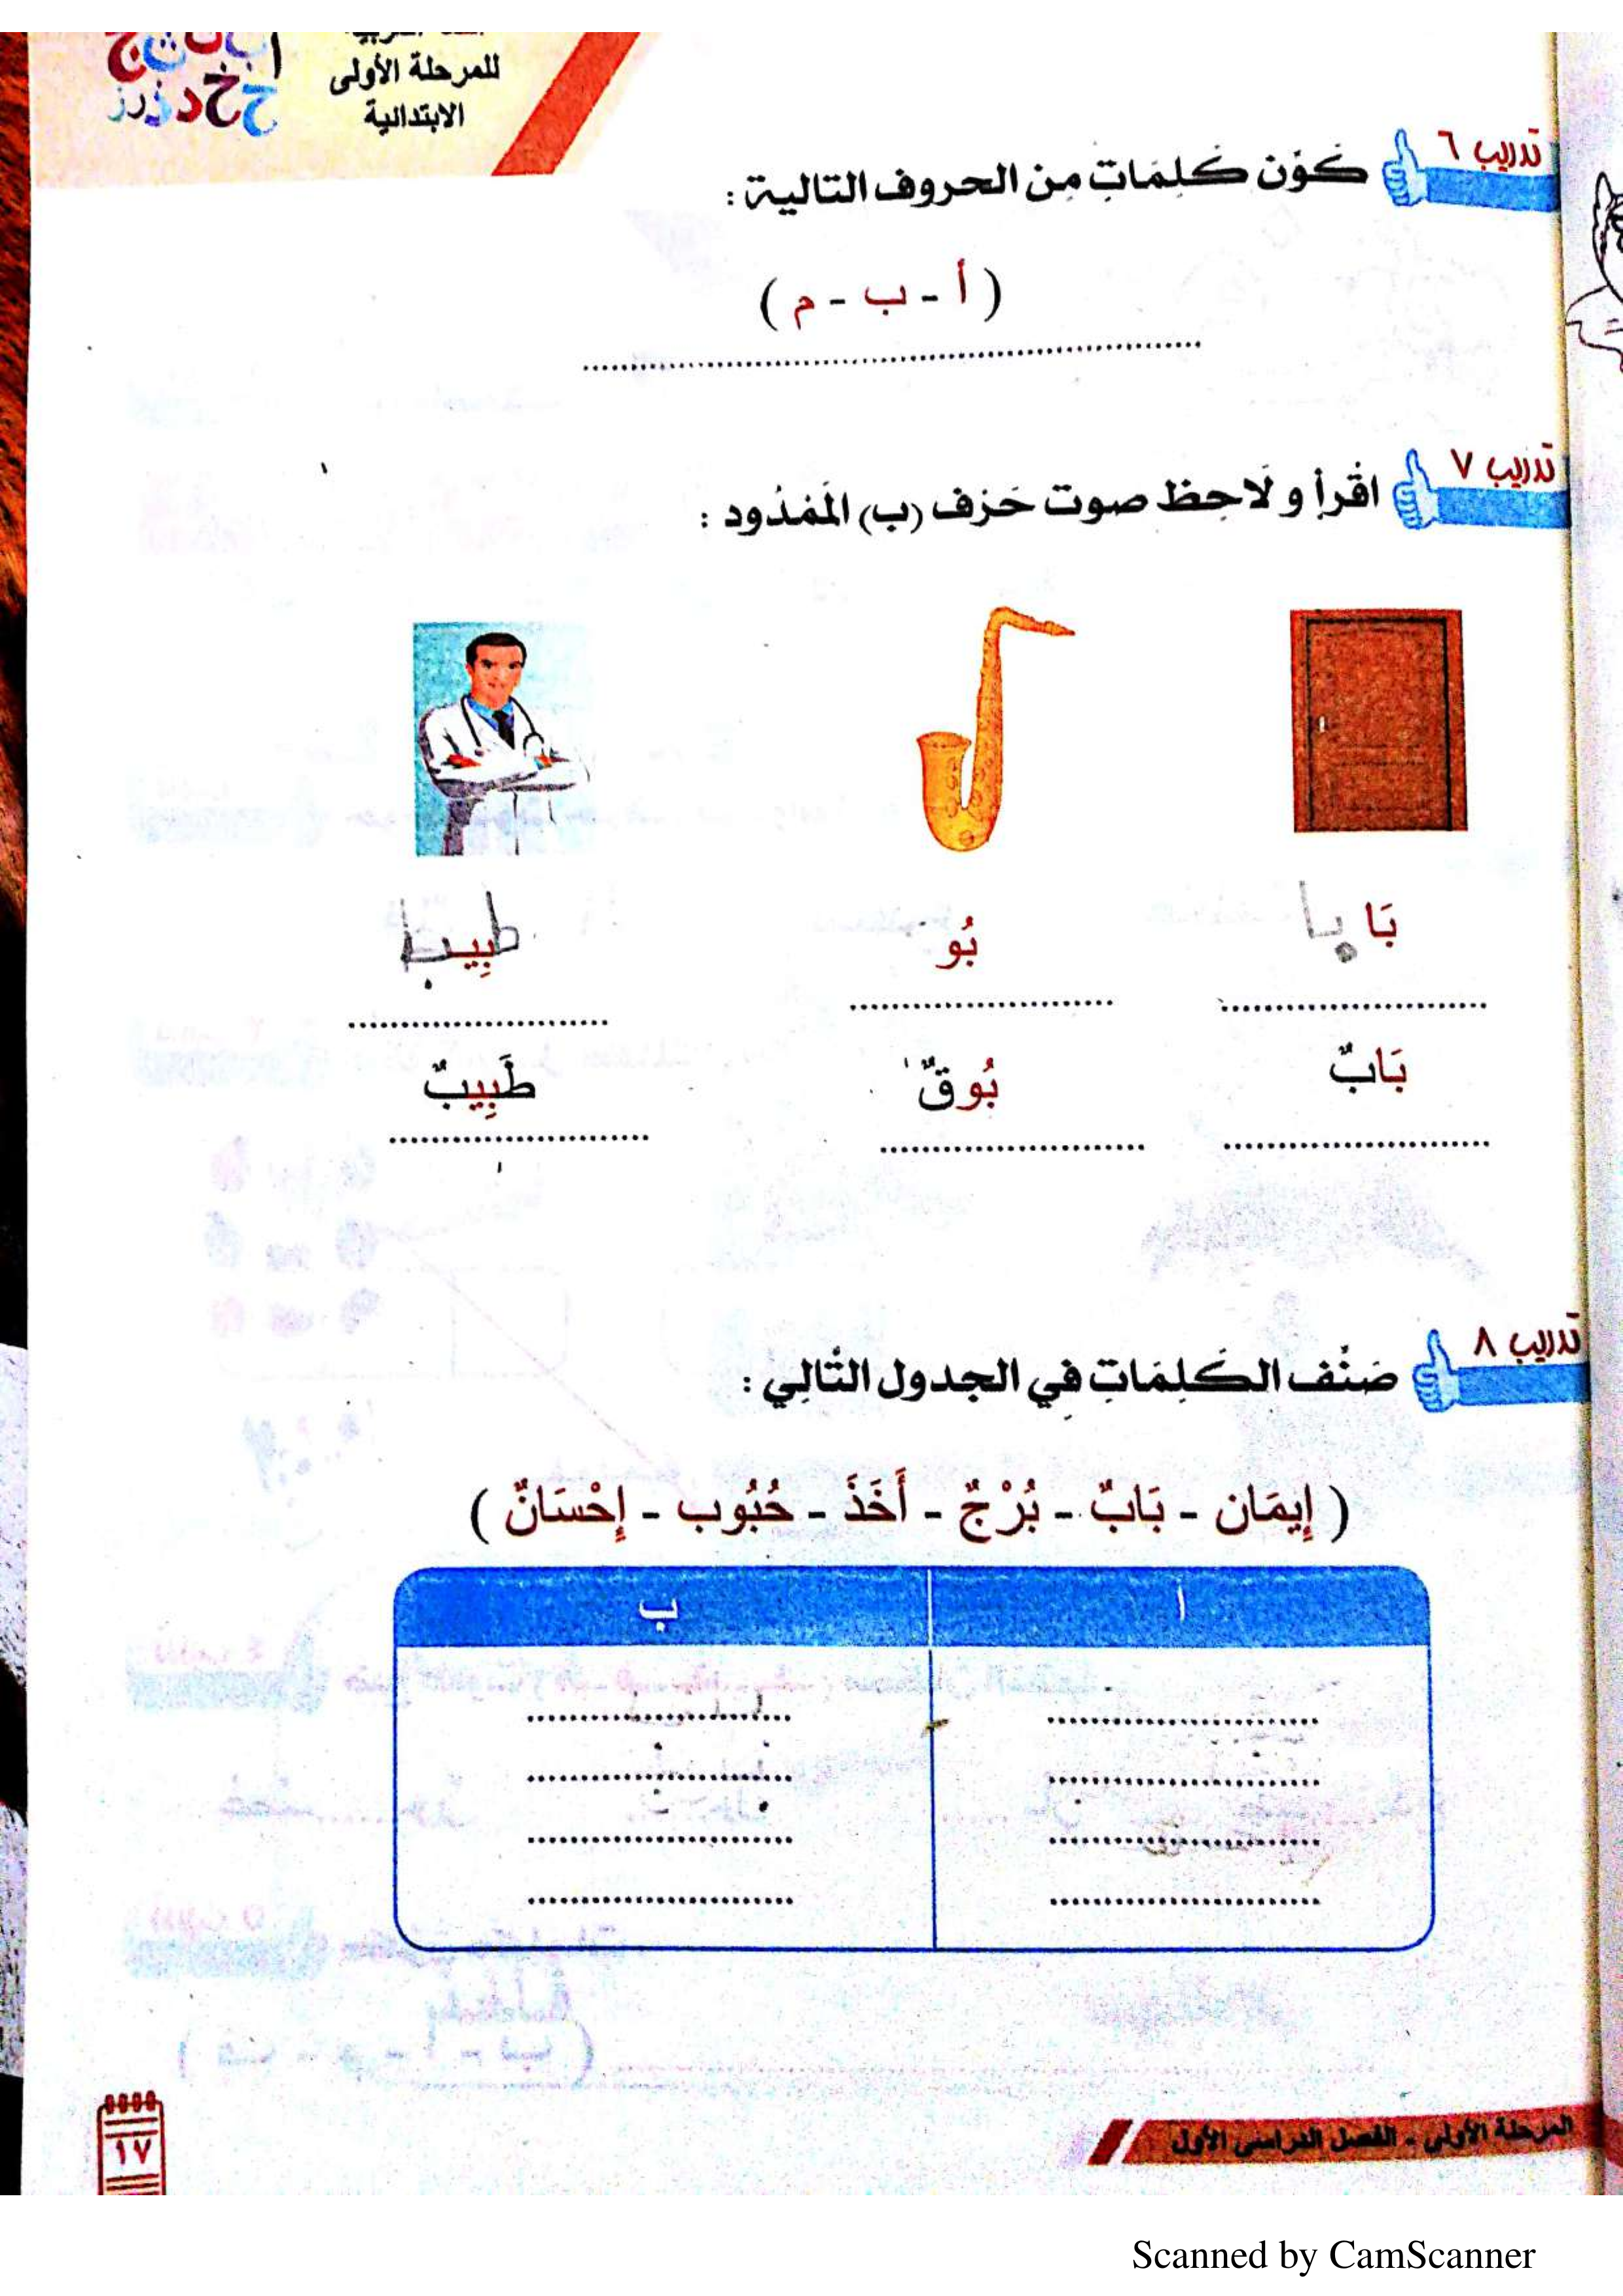 للمرحلة الأولى
الابتدائية
تدريب ٦
كَوِّن كَلِمَاتٍ مِن الحروف التالية :
( أ - ب - م )
تدريب ٧
اقْرأ و لَاحِظ صوت حَرْف (ب) المَمْدُود :
بَا با
بُو
طبِيب
بَابٌ
بُوقٌ
طَبِيبٌ
تدريب ٨
صَنِّف الكَلِمَاتِ فِي الجدول التَّالِي :
( إِيمَان - بَابٌ - بُرْجٌ - أَخَذَ - حُبُوب - إِحْسَانٌ )
ا ب
المرحلة الأولى - الفصل الدراسى الأول
١٧
Scanned by CamScanner